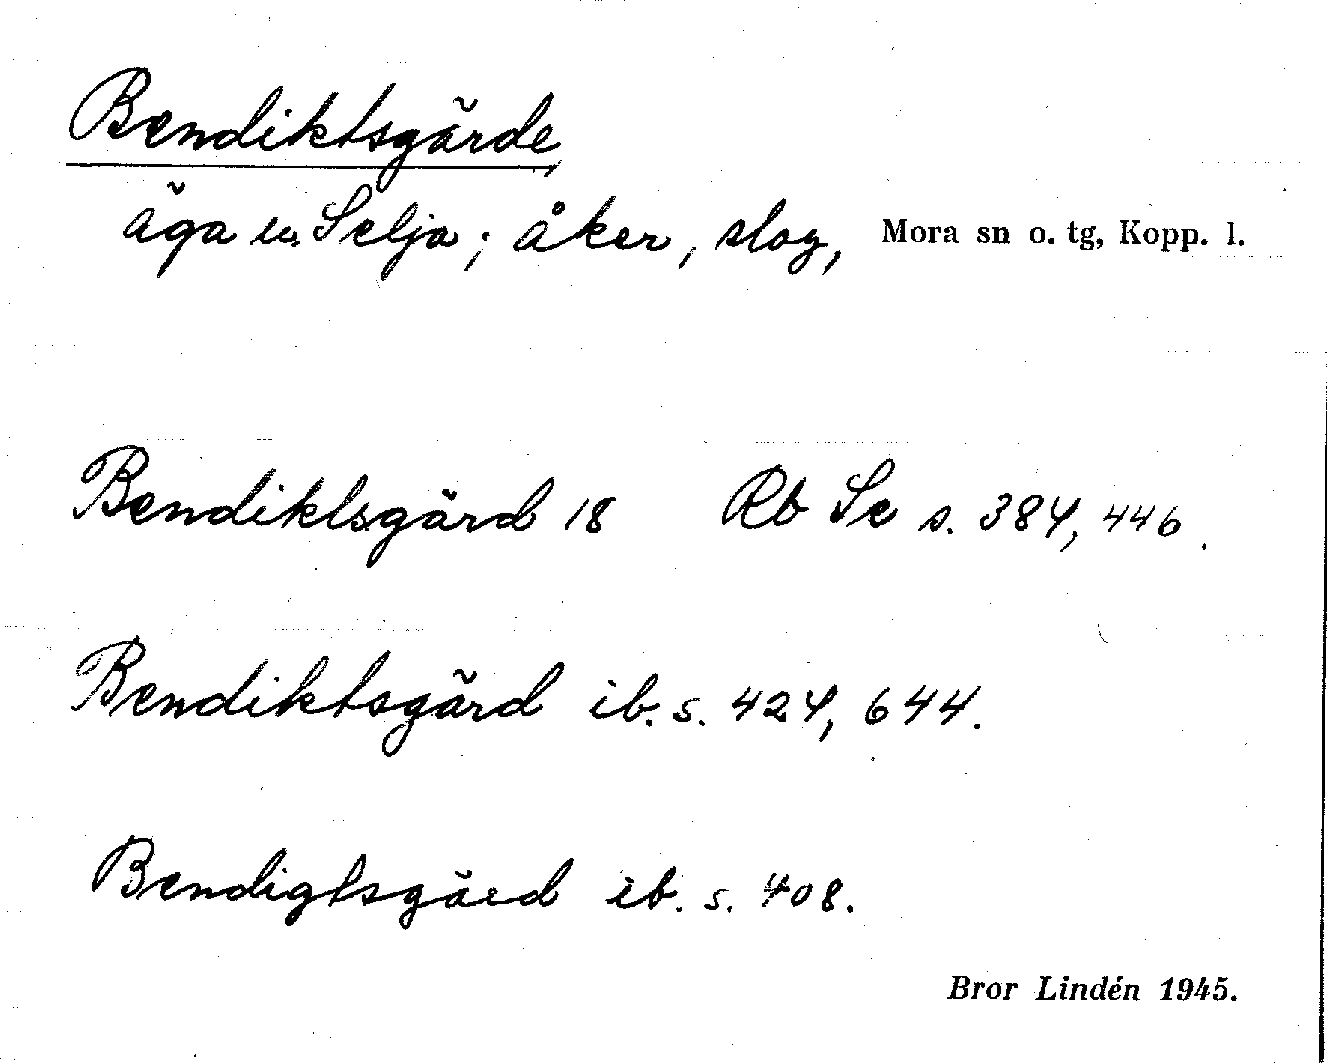 Bendiktsgärde,
äga u. Selja; åker, slog, Mora sn o. tg, Kopp. l.
Bendiktsgärd 18 Rb Se s. 384, 446.
Bendiktsgärd ib. s. 424, 644.
Bendigtsgärd ib. s. 408.
Bror Lindén 1945.